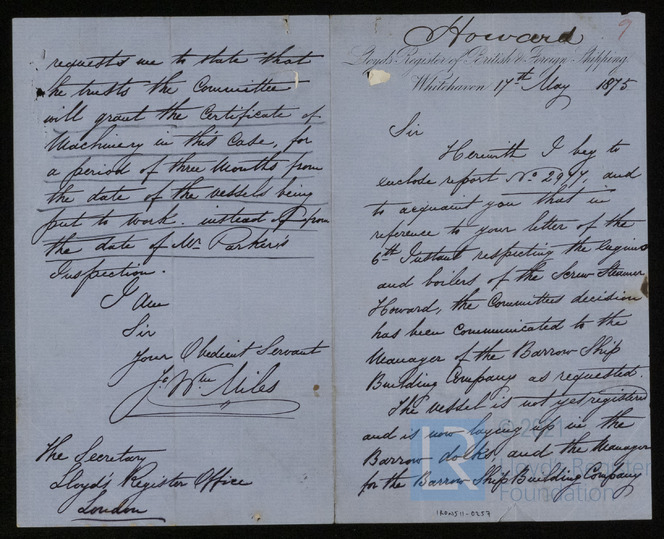 Howard
9
Lloyd's Register of British & Foreign Shipping.
Whitehaven 17th May 1875
Sir
Herewith I beg to
enclose report No 2977, and
to acquaint you that in
reference to your letter of the
6th Instant respecting the Engines
and boilers of the Screw Steamer
Howard, the Committees decision
has been communicated to the
Manager of the Barrow Ship
Building Company as requested.
The vessel is not yet registered
and is now laying up in the
Barrow docks, and the Manager
for the Barrow Ship Building Company
requests me to state that
he trusts the Committee
will grant the Certificate of
Machinery in this case, for
a period of three Months from
the date of the vessels being
put to work. instead of from
the date of Mr Parker's
Inspection.
I am
Sir
Your Obedient Servant
Wm Miles
The Secretary
Lloyd's Register Office
London
© 2021
LR
Lloyd's Register
Foundation
IRON511-0257